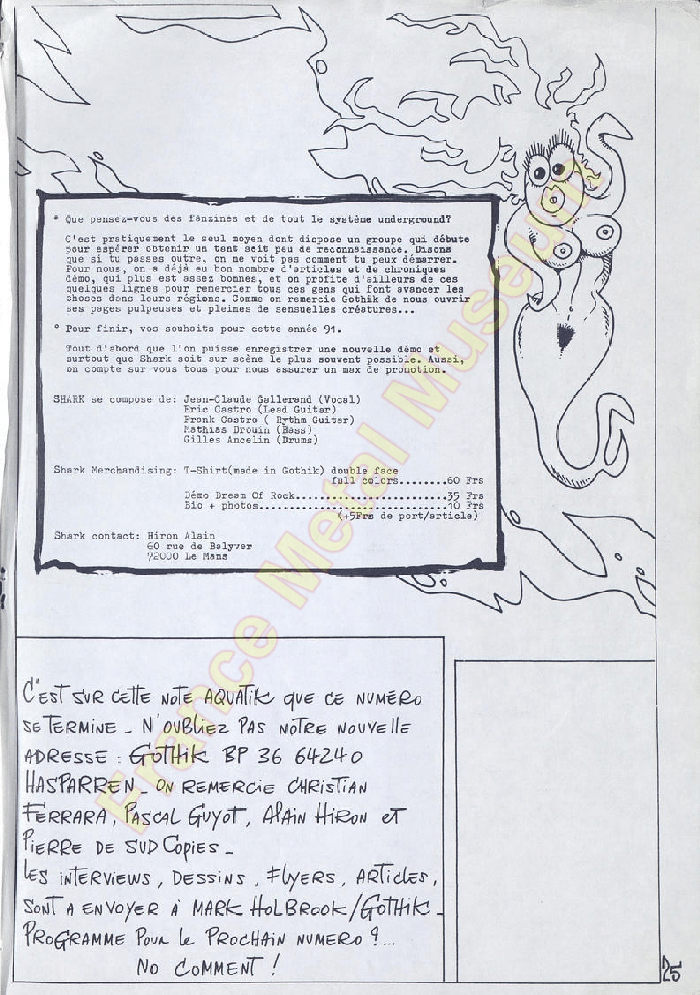 * Que pensez-vous des fanzines et de tout le système underground?
C'est pratiquement le seul moyen dont dispose un groupe qui débute
pour espérer obtenir un tant soit peu de reconnaissance. Disons
que si tu passes outre, on ne voit pas comment tu peux démarrer.
Pour nous, on a déjà eu bon nombre d'articles et de chroniques
démo, qui plus est assez bonnes, et on profite d'ailleurs de ces
quelques lignes pour remercier tous ces gens qui font avancer les
choses dans leurs régions. Comme on remercie Gothik de nous ouvrir
ses pages pulpeuses et pleines de sensuelles créatures...
* Pour finir, vos souhaits pour cette année 91.
Tout d'abord que l'on puisse enregistrer une nouvelle démo et
surtout que Shark soit sur scène le plus souvent possible. Aussi,
on compte sur vous tous pour nous assurer un max de promotion.
SHARK se compose de: Jean-Claude Gallerand (Vocal)
Eric Castro (Lead Guitar)
Frank Castro ( Rythm Guitar)
Mathias Drouin (Bass)
Gilles Ancelin (Drums)
Shark Merchandising: T-Shirt(made in Gothik) double face
full colors........60 Frs
Démo Dream Of Rock.......................35 Frs
Bio + photos.............................10 Frs
(+5Frs de port/article)
Shark contact: Hiron Alain
60 rue de Belyver
72000 Le Mans
C'EST SUR CETTE NOTE AQUATIK QUE CE NUMÉRO
SE TERMINE_ N'OUBLIEZ PAS NOTRE NOUVELLE
ADRESSE : GOTHIK BP 36 64240
HASPARREN_ ON REMERCIE CHRISTIAN
FERRARA, PASCAL GUYOT, ALAIN HIRON ET
PIERRE DE SUD COPIES_
LES INTERVIEWS, DESSINS, FLYERS, ARTICLES,
SONT A ENVOYER À MARK HOLBROOK/GOTHIK_
PROGRAMME POUR LE PROCHAIN NUMERO ?...
NO COMMENT !
25
France Metal Museum